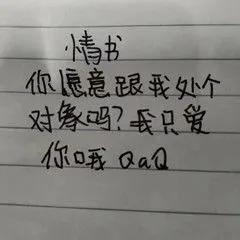 情书
你愿意跟我处个
对象吗？我只爱
你哦 QaQ